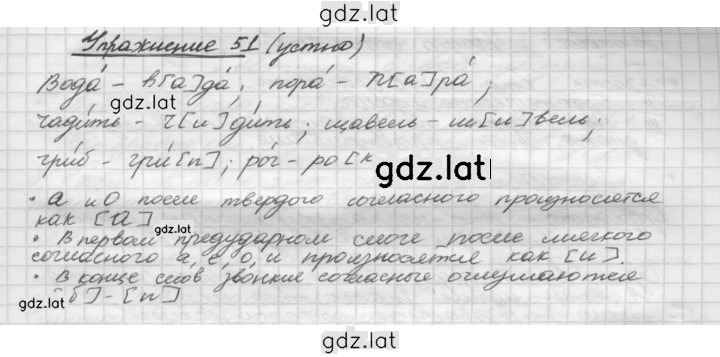 gdz.lat
Упражнение 51 (устно)
Вода́ - в[а]да́; пора́ - п[а]ра́;
gdz.lat
чади́ть - ч[и]ди́ть; щавель - щ[и]вель;
гри́б - гри́[п]; ро́г - ро[к
gdz.lat
• а и о после твердого согласного произносятся
как [а]
gdz.lat
• В первом предударном слоге после мягкого
согласного а, е, о, и произносятся как [и].
• В конце слов звонкие согласные оглушаются
gdz.lat
б]-[п]
gdz.lat